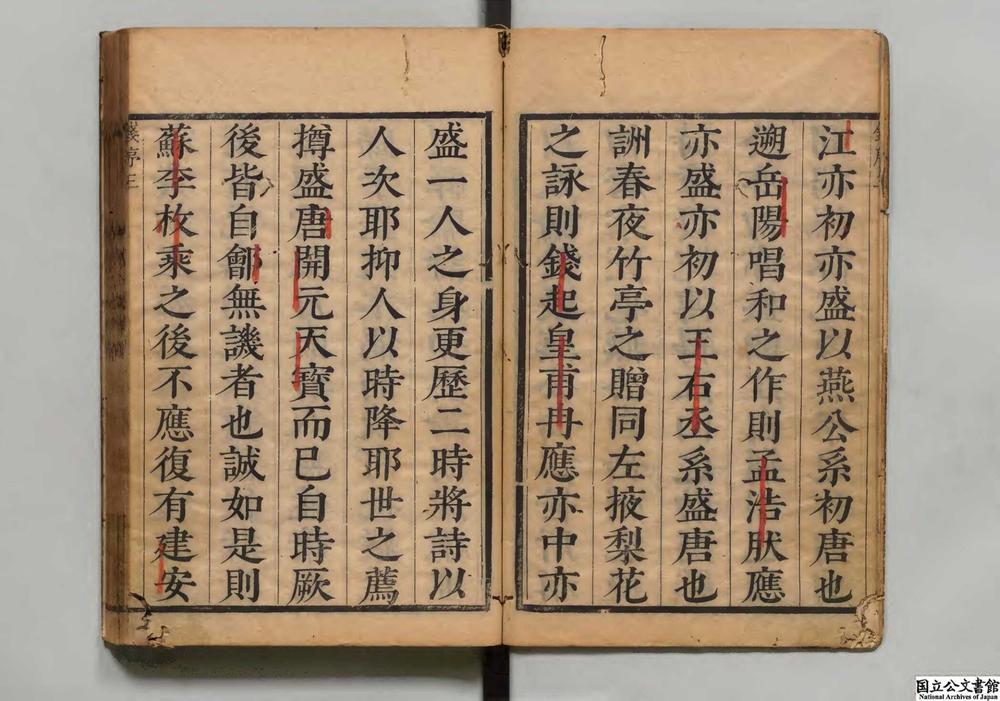 江亦初亦盛以燕公系初唐也
遡岳陽唱和之作則孟浩肰應
亦盛亦初以王右丞系盛唐也
詶春夜竹亭之贈同左掖梨花
之詠則錢起皇甫冉應亦中亦
盛一人之身更歷二時將詩以
人次耶抑人以時降耶世之薦
撙盛唐開元天寶而已自時厥
後皆自鄶無譏者也誠如是則
蘇李枚乘之後不應復有建安
錢序三
国立公文書館
National Archives of Japan